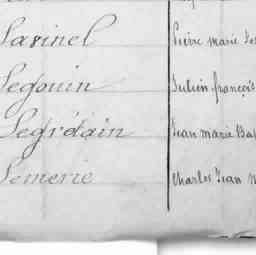 Savinel Pierre marie
Segouin Julien françois
Segrétain Jean marie
Semerie Charles Jean